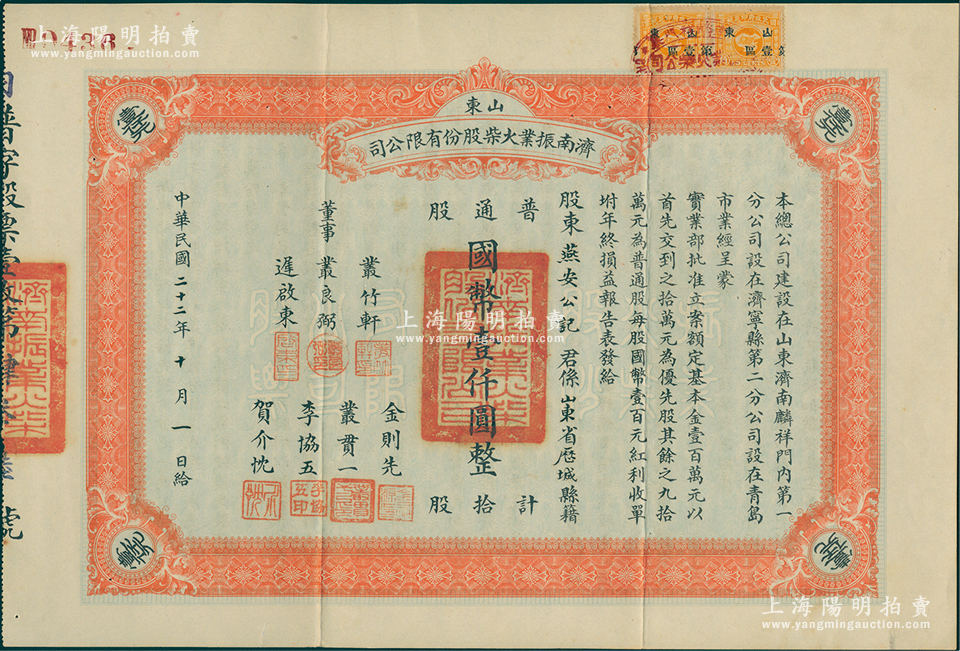 上海陽明拍賣
www.yangmingauction.com
山東
濟南振業火柴股份有限公司
本總公司建設在山東濟南麟祥門內第一
分公司設在濟寧縣第二分公司設在青島
市業經呈蒙
實業部批准立案額定基本金壹百萬元以
首先交到之拾萬元為優先股其餘之九拾
萬元為普通股每股國幣壹百元紅利收單
坿年終損益報告表發給
股東燕安公記 君係山東省歷城縣籍
普通股
國幣壹仟圓整
計拾股
董事
叢竹軒
叢良弼
遲啟東
金則先
叢貫一
李協五
賀介忱
中華民國二十二年十月一日給
普字股票
號
山東
第壹區
上海陽明拍賣
www.yangmingauction.com
上海陽明拍賣
www.yangmingauction.com